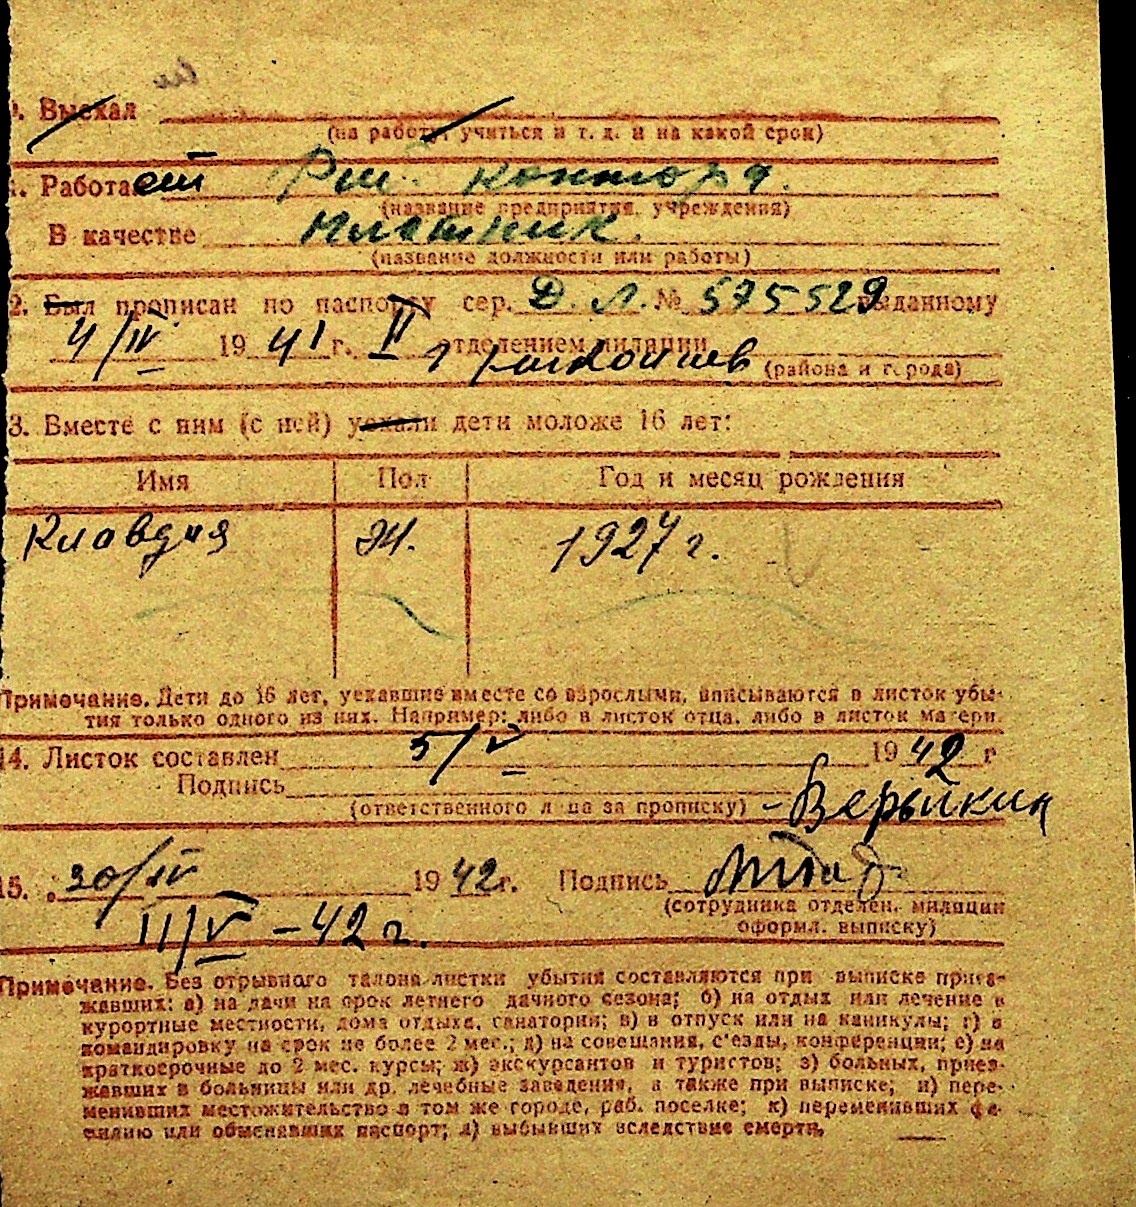 Выехал
(на работу, учиться и т. д. и на какой срок)
Работает контора.
(название предприятия, учреждения)
В качестве плотник.
(название должности или работы)
2. Был прописан по паспорту сер. Д. Л. № 575529 выданному
4/IV 19 41 г. II отделением милиции
(района и города)
3. Вместе с ним (с ней) уехали дети моложе 16 лет:
Имя Пол Год и месяц рождения
Клавдия Ж. 1927 г.
Примечание. Дети до 16 лет, уехавшие вместе со взрослыми, вписываются в листок убы-
тия только одного из них. Например: либо в листок отца, либо в листок матери.
14. Листок составлен 5/V 19 42 г
Подпись
(ответственного лица за прописку) - Верыйкин
15. 30/IV 19 42 г. Подпись
(сотрудника отделен. милиции
11/V - 42 г.
оформл. выписку)
Примечание. Без отрывного талона листки убытия составляются при выписке приез-
жавших: а) на дачи на срок летнего дачного сезона; б) на отдых или лечение в
курортные местности, дома отдыха, санатории; в) в отпуск или на каникулы; г) в
командировку на срок не более 2 мес.; д) на совещания, с'езды, конференции; е) на
краткосрочные до 2 мес. курсы; ж) экскурсантов и туристов; з) больных, приез-
жавших в больницы или др. лечебные заведения, а также при выписке; и) пере-
менивших местожительство в том же городе, раб. поселке; к) переменивших фа-
милию или обменявших паспорт; л) выбывших вследствие смерти.